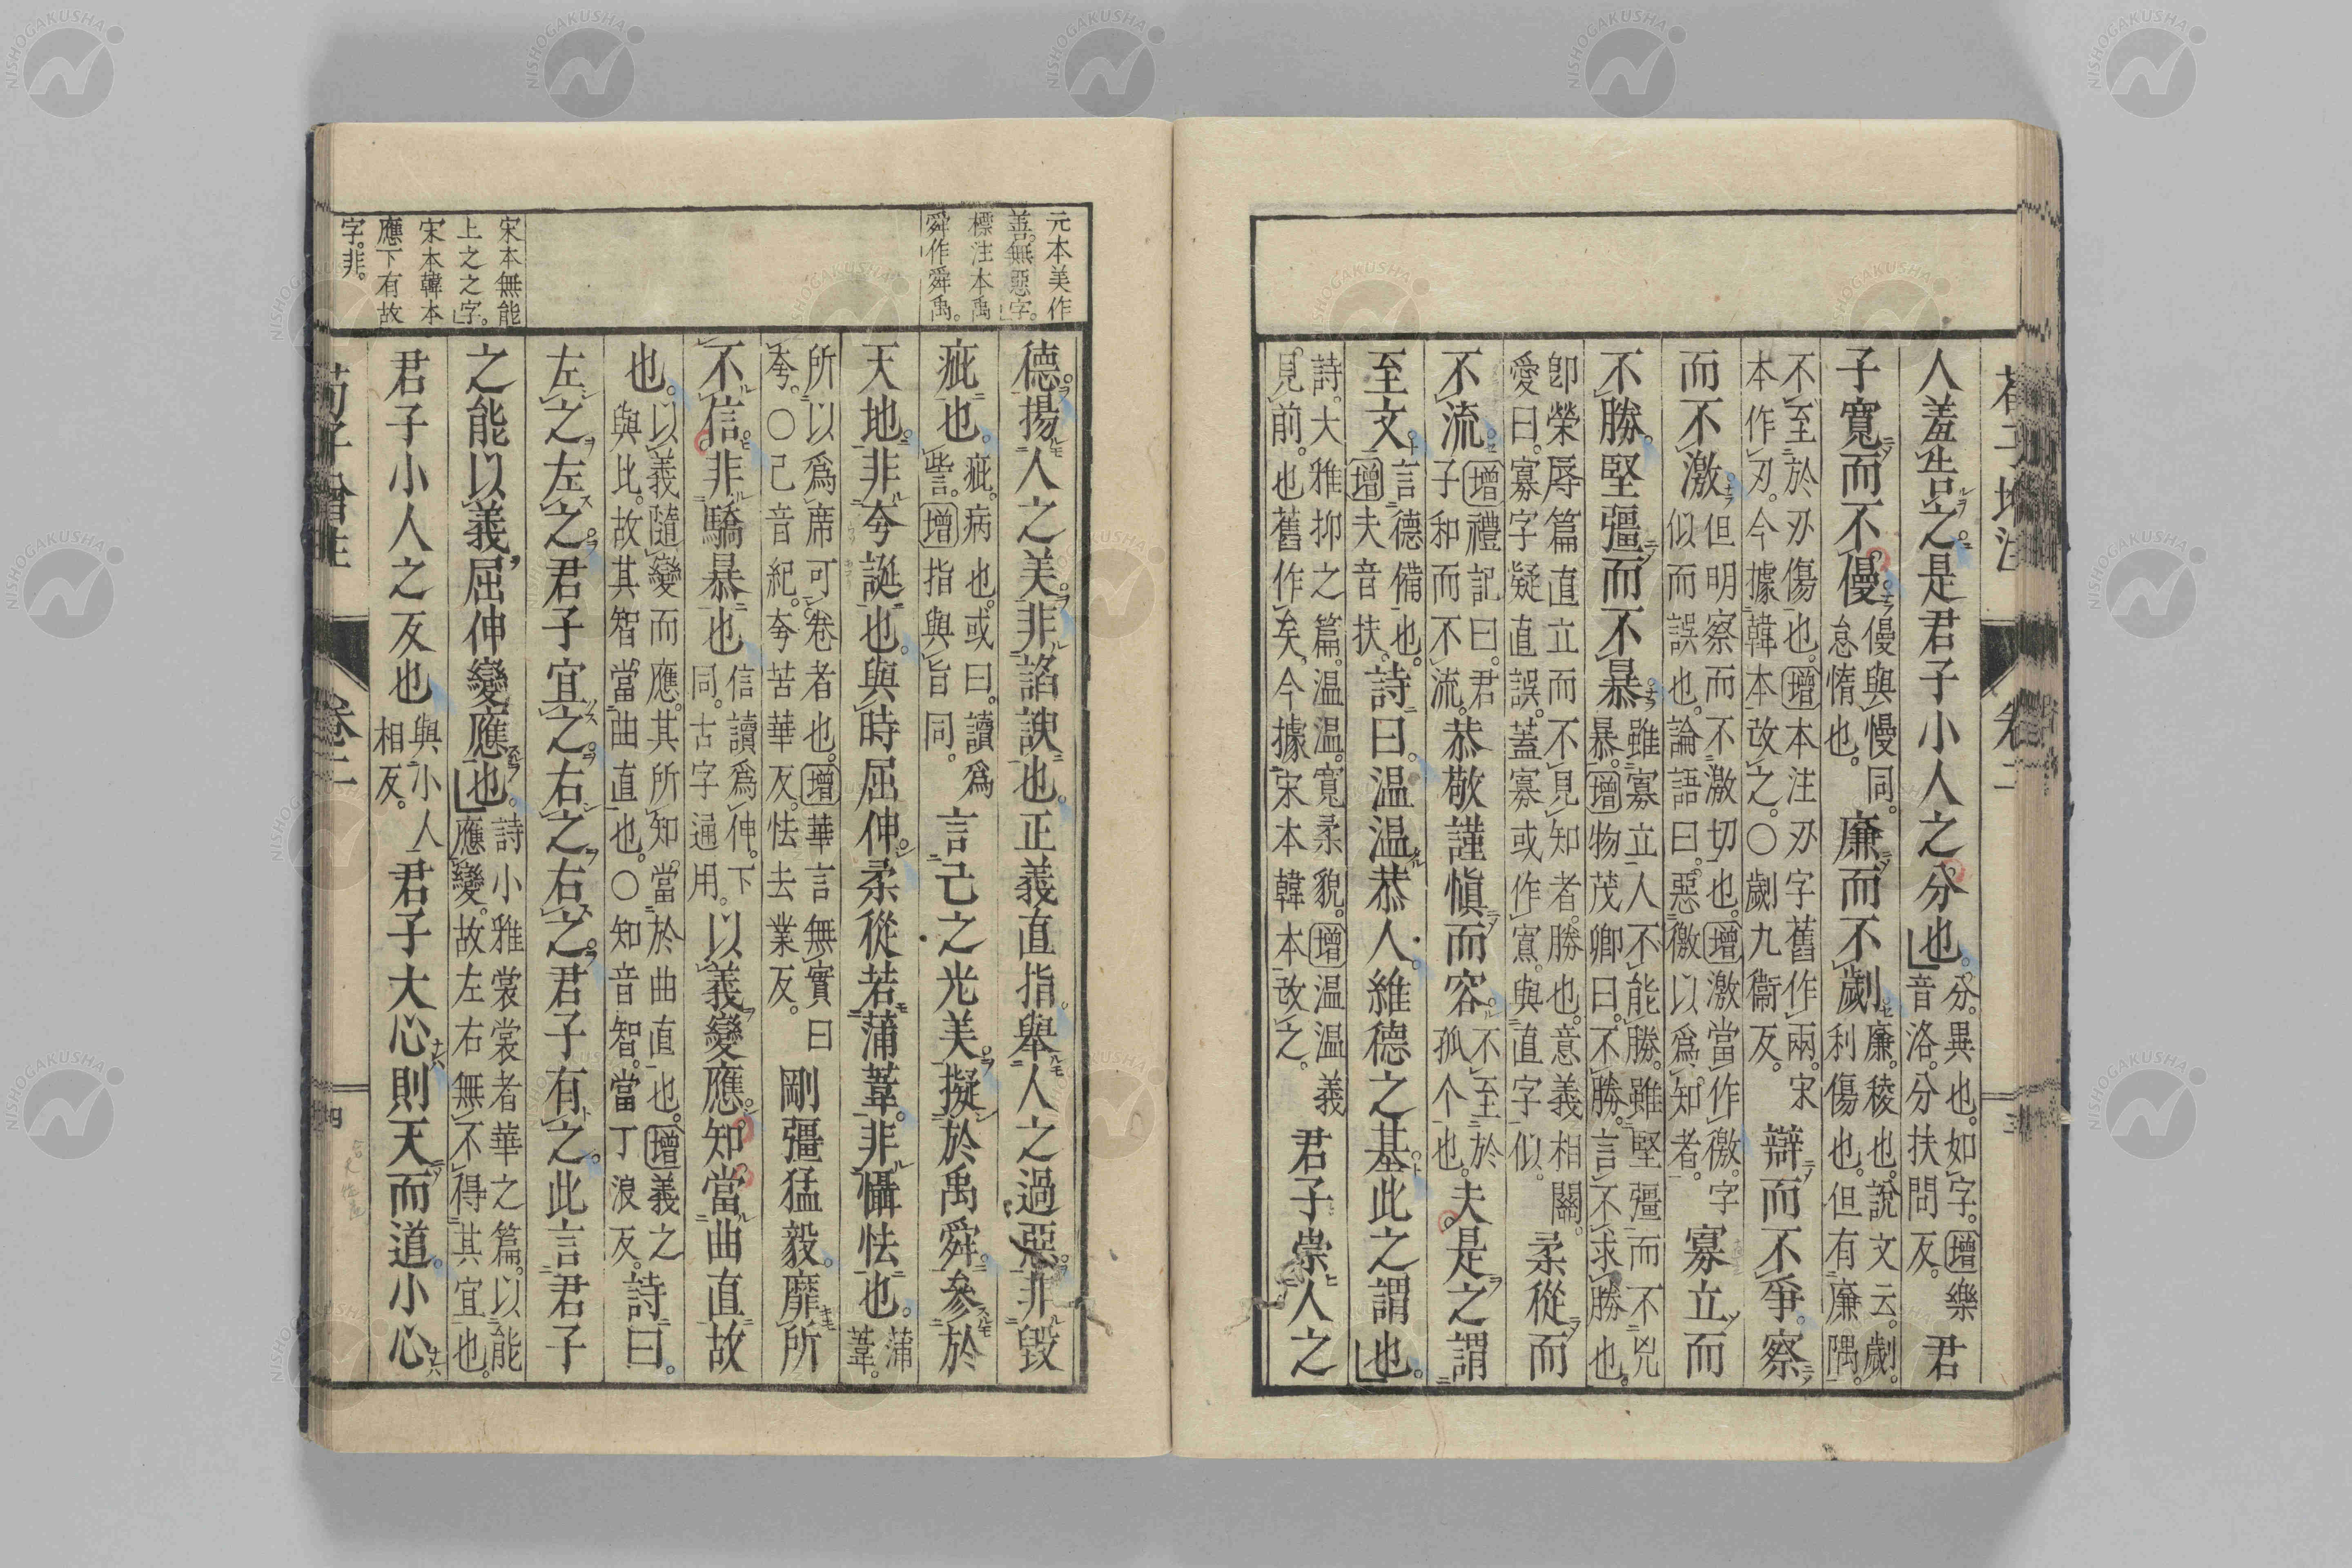 荀子增注 卷二 三
人羞告之。是君子小人之分也。分。異也。如字。增樂音洛。分扶問反。君
子寬而不僈僈與慢同。怠惰也。廉而不劌廉。稜也。說文云。劌。利傷也。但有廉隅。
不至於刃傷也。增本注刃字舊作兩。宋本作刃。今據韓本改之。○劌九衞反。辯而不爭。察
而不激。但明察而不激切也。增激當作徼。字似而誤也。論語曰。惡徼以爲知者。寡立而
不勝。堅彊而不暴。雖寡立。人不能勝。雖堅彊而不兇暴。增物茂卿曰。不勝。言不求勝也。
卽榮辱篇直立而不見知者。勝也。意義相關。愛曰。寡字疑直誤。蓋寡或作寡。與直字似。柔從而
不流。增禮記曰。君子和而不流。恭敬謹愼而容。不至於孤个也。夫是之謂
至文。言德備也。增夫音扶。詩曰。温温恭人。維德之基。此之謂也。
詩。大雅抑之篇。温温。寬柔貌。增温温義見前。也舊作矣。今據宋本韓本改之。君子崇人之
元本美作
善。無惡字。
標注本禹
舜作舜禹。
德。揚人之美。非諂諛也。正義直指。舉人之過惡。非毀
疵也。疵。病也。或曰。讀爲訾。增指與旨同。言己之光美。擬於禹舜。參於
天地。非夸誕也。與時屈伸。柔從若蒲葦。非懾怯也。蒲葦。
所以爲席。可卷者也。增華言無實曰夸。○己音紀。夸苦華反。怯去業反。剛彊猛毅。靡所
不信。非驕暴也信讀爲伸。下同。古字通用。以義變應。知當曲直故
也。以義隨變而應。其所知。當於曲直也。增義之與比。故其智當曲直也。○知音智。當丁浪反。詩曰。
左之左之。君子宜之。右之右之。君子有之。此言君子
之能以義屈伸變應也。詩小雅裳裳者華之篇。以能應變。故左右無不得其宜也。
君子小人之反也與小人相反。君子大心則天而道。小心
宋本無能
上之之字。
宋本韓本
應下有故
字。非。
荀子增注 卷二 四